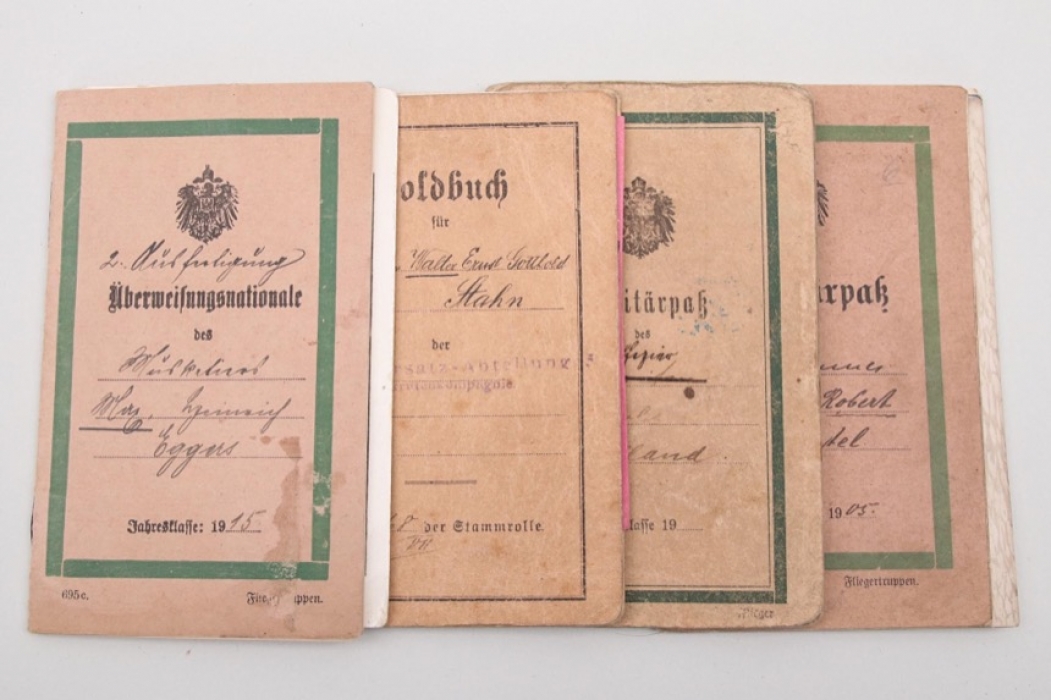 2. Ausfertigung
Überweisungsnationale
des
Musketiers
Max, Heinrich
Eggers
Jahresklasse: 1915
695c.
oldbuch
für
Walter Ernst Gotthold
Stahn
der
8 der Stammrolle.
VII
itärpaß
des
land.
lasse 19
Flieger
ärpaß
Robert
tel.
1905.
Fliegertruppen.